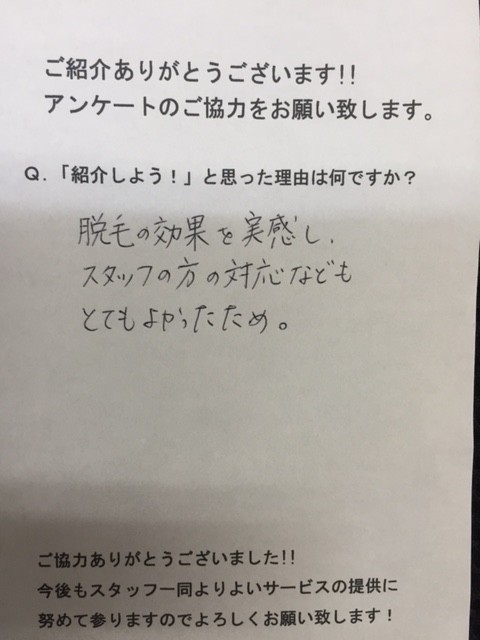 ご紹介ありがとうございます!!
アンケートのご協力をお願い致します。
Q.「紹介しよう!」と思った理由は何ですか?
脱毛の効果を実感し、
スタッフの方の対応なども
とてもよかったため。
ご協力ありがとうございました!!
今後もスタッフ一同よりよいサービスの提供に
努めて参りますのでよろしくお願い致します!